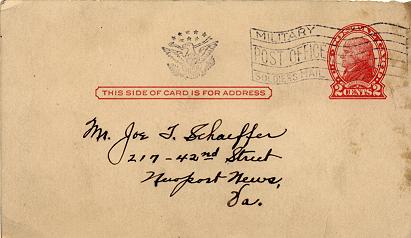 MILITARY
POST OFFICE
SOLDIERS MAIL
2 CENTS 2
THIS SIDE OF CARD IS FOR ADDRESS
Mr. Joe T. Schaeffer
217-42nd Street
Newport News,
Va.